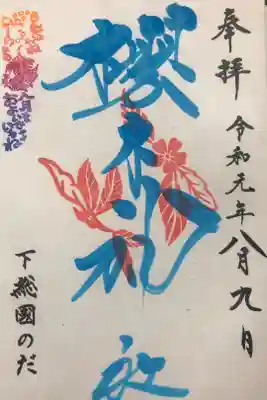 奉拝
令和元年八月九日
櫻木神社
下総國のだ